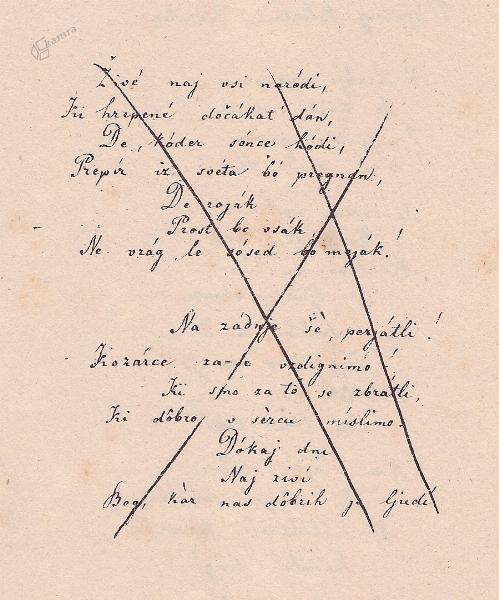 kamra
Živé naj vsi naródi,
Ki hrepené dočákat dán,
De, kóder sónce hódi,
Prepír iz svéta bó pregnan,
De roják
Prost bo vsák,
Ne vrág, le sósed bó meják!
Na zádnje še, perjátli!
Kozárce za-se vzdignimo!
Ki smo za tó se zbrátli,
Ki dôbro v sèrcu míslimo.
Dókaj dni
Naj živí
Bog, kàr nas dôbrih je ljudí